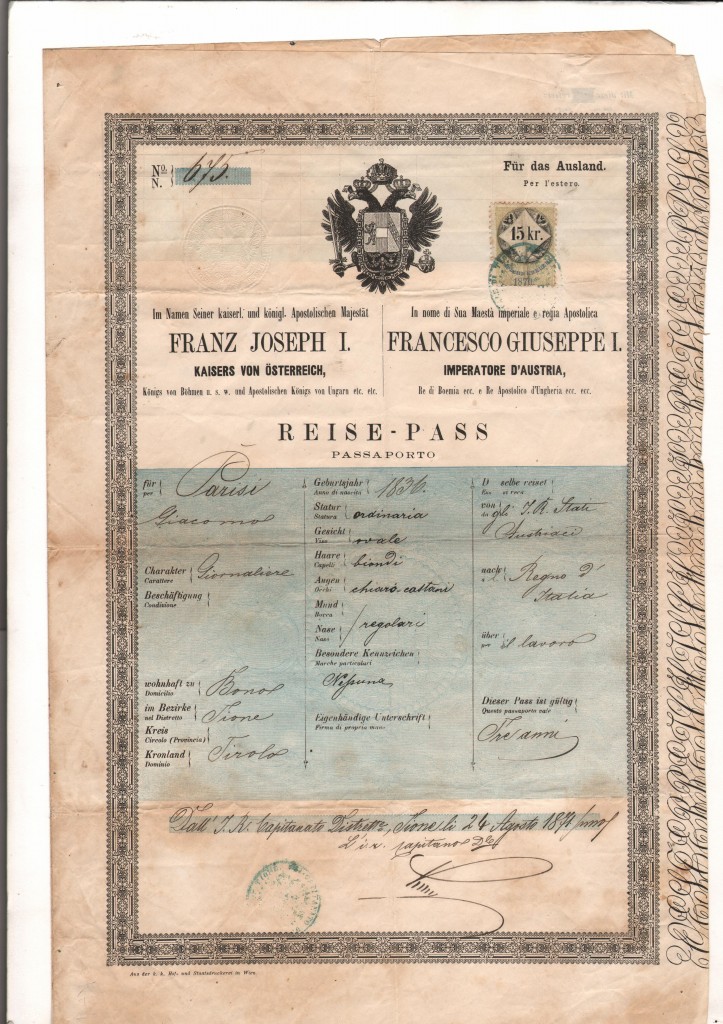 No.
N. 675.
Für das Ausland.
Per l'estero.
15 kr.
1870
Im Namen Seiner kaiserl. und königl. Apostolischen Majestät
FRANZ JOSEPH I.
KAISERS VON ÖSTERREICH,
Königs von Böhmen u. s. w. und Apostolischen Königs von Ungarn etc. etc.
In nome di Sua Maestà imperiale e regia Apostolica
FRANCESCO GIUSEPPE I.
IMPERATORE D'AUSTRIA,
Re di Boemia ecc. e Re Apostolico d'Ungheria ecc. ecc.
REISE-PASS
PASSAPORTO
für
per Parisi
Giacomo
Charakter
Carattere Giornaliere
Beschäftigung
Condizione
wohnhaft zu
Domicilio Bono
im Bezirke
nel Distretto Tione
Kreis
Circolo (Provincia)
Kronland
Dominio Tirolo
Geburtsjahr
Anno di nascita 1836.
Statur
Statura ordinaria
Gesicht
Viso ovale
Haare
Capelli biondi
Augen
Occhi chiaro castani
Mund
Bocca
Nase
Naso regolari
Besondere Kennzeichen
Marche particolari
Nessuna
Eigenhändige Unterschrift
Firma di propria mano
D selbe reiset
Ess si reca
von
da gli I. R. Stati
Austriaci
nach
a Regno d'
Italia
über
per il lavoro
Dieser Pass ist gültig
Questo passaporto vale
Tre anni
Dall' I. R. Capitanato Distrett. Tione li 24 Agosto 1870
L'i. r. Capitano
Aus der k. k. Hof- und Staatsdruckerei in Wien.